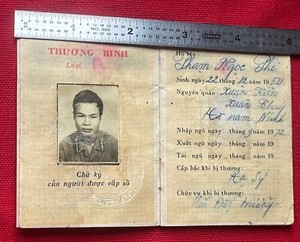 THƯƠNG BINH
Loại A
Chữ ký
của người được cấp sổ
Họ tên Phạm Ngọc Thi
Sinh ngày 22 tháng 12 năm 1950
Nguyên quán Xuân Tiến
Xuân Thủy
Hà Nam Ninh
Nhập ngũ ngày tháng 4 năm 1972
Xuất ngũ ngày tháng năm 19
Tái ngũ ngày tháng năm 19
Cấp bậc khi bị thương:
Hạ Sỹ
Chức vụ khi bị thương: